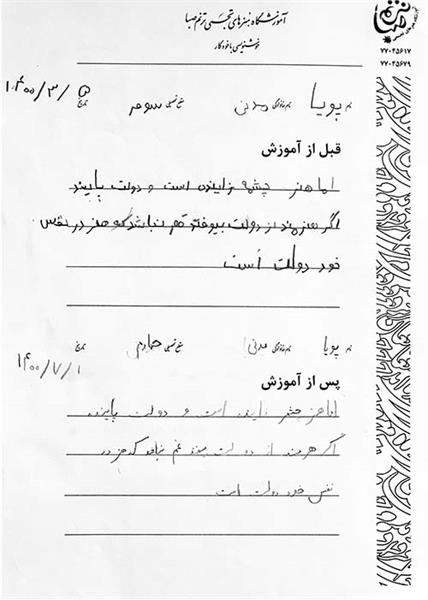 آموزشگاه هنرهای تجسمی ترنم صبا
خوشنویسی با خودکار
۷۷۰۴۵۶۱۷
۷۷۰۴۵۶۷۹
نام پویا نام خانوادگی مدنی مقطع تحصیلی سوم تاریخ ۱۴۰۰/۳/۵
قبل از آموزش
اما هنر چشمه زاینده است و دولت پاینده
اگر هنرمند از دولت بیوفتد غم نباشد که هنر در نفس
خود دولت است
نام پویا نام خانوادگی مدنی مقطع تحصیلی چهارم تاریخ ۱۴۰۰/۷/۱
پس از آموزش
اما هنر چشمه زاینده است و دولت پاینده
اگر هنرمند از دولت بیفتد غم نباشد که هنر در
نفس خود دولت است